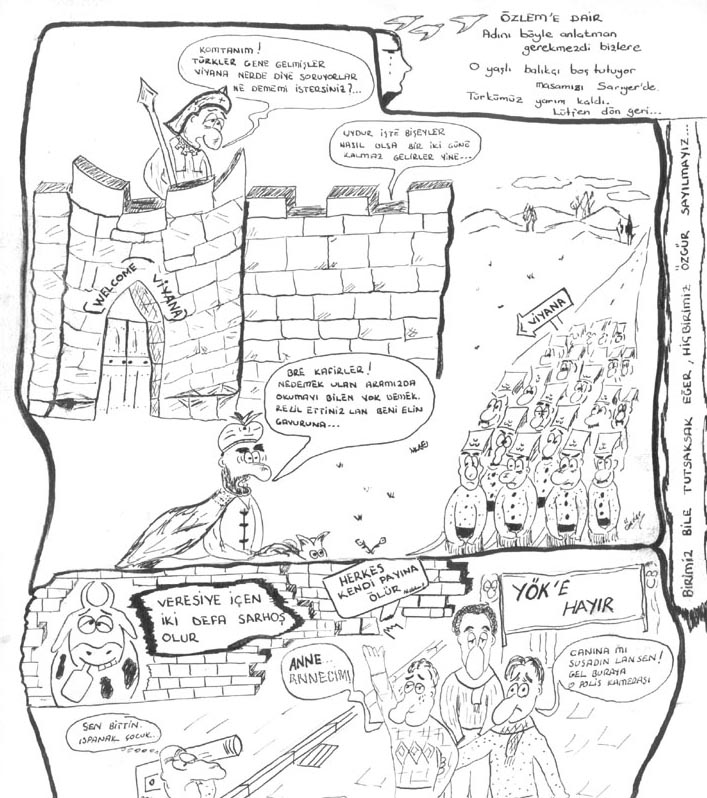 ÖZLEM'E DAİR
Adını böyle anlatmam
gerekmezdi bizlere
O yaşlı balıkçı boş tutuyor
masamızı Sarıyer'de.
Türkümüz yarım kaldı.
Lütfen dön geri...
KOMTANIM!
TÜRKLER GENE GELMİŞLER
VİYANA NERDE DİYE SORUYORLAR
NE DEMEMİ İSTERSİNİZ?...
UYDUR İŞTE BİŞEYLER
NASIL OLSA BİR İKİ GÜNE
KALMAZ GELİRLER YİNE...
WELCOME VİYANA
VİYANA
BRE KAFİRLER!
NEDEMEK ULAN ARAMIZDA
OKUMAYI BİLEN YOK DEMEK.
REZİL ETTİNİZ LAN BENİ ELİN
GAVURUNA...
BİRİMİZ BİLE TUTSAKSAK EĞER, HİÇBİRİMİZ ÖZGÜR SAYILMAYIZ...
VERESİYE İÇEN
İKİ DEFA SARHOŞ
OLUR
HERKES
KENDİ PAYINA
ÖLÜR
YÖK'E
HAYIR
ANNE..
ANNECİM!
CANINA MI
SUSADIN LAN SEN!
GEL BURAYA
O POLİS KAMERASI
SEN BİTTİN.
ISPANAK ÇOCUK..